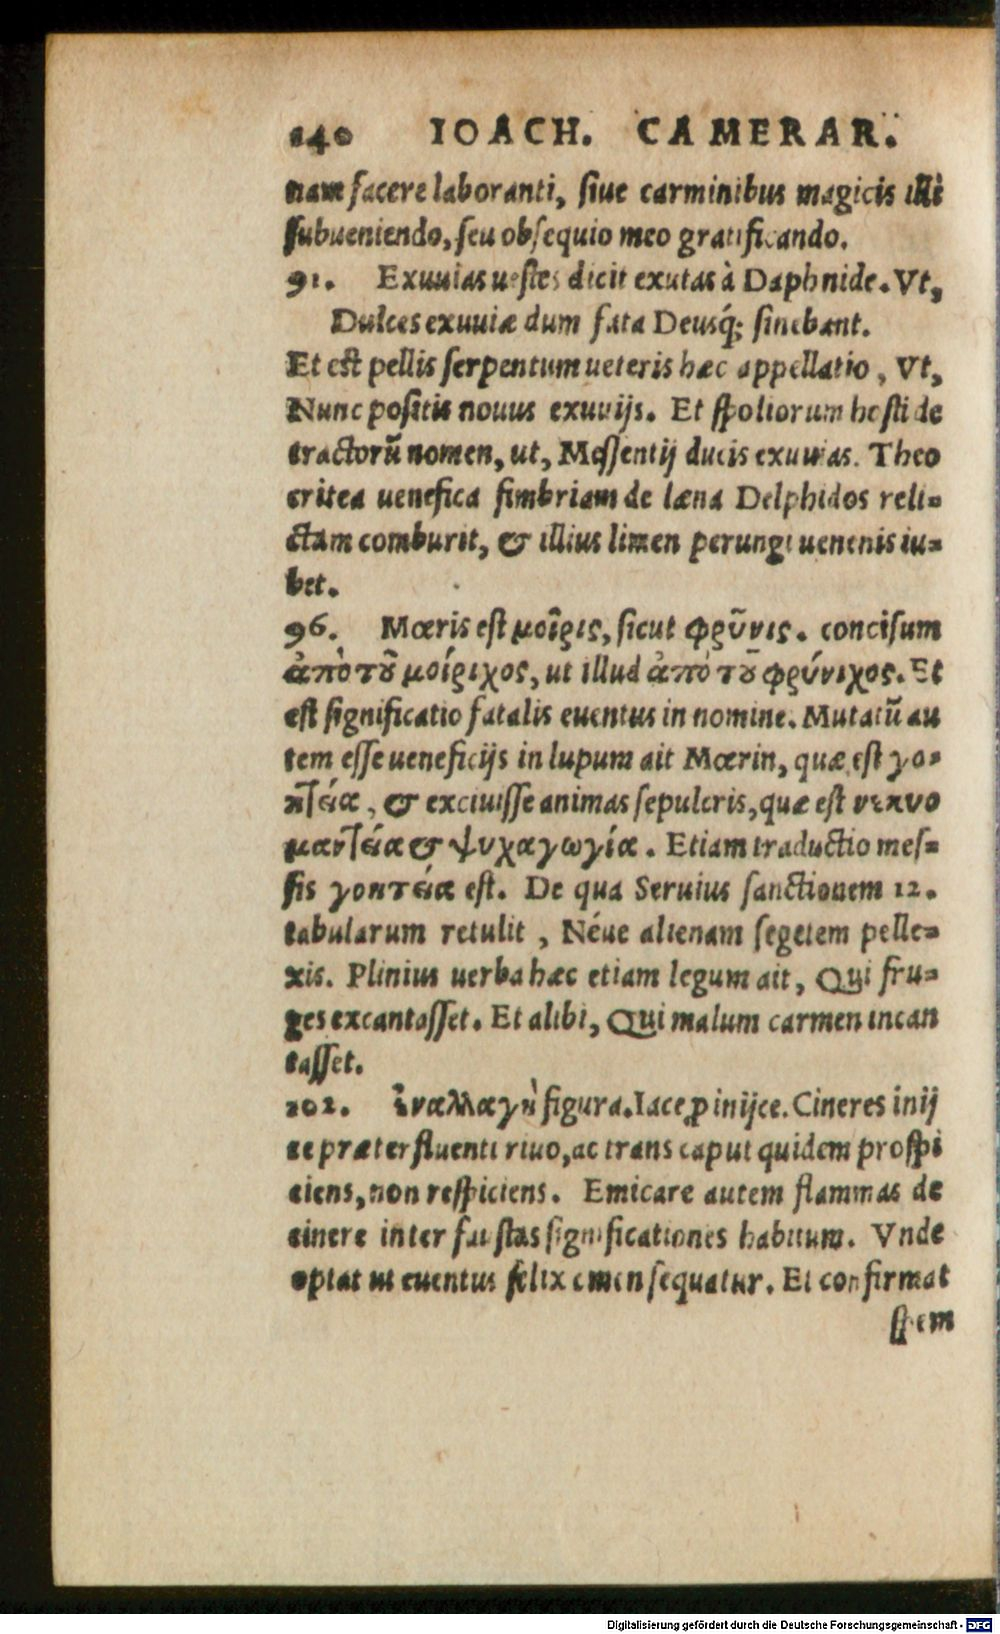 140 IOACH. CAMERAR.
nam facere laboranti, ſiue carminibus magicis illi
ſubueniendo, ſeu obſequio meo gratificando.
91. Exuuias ueſtes dicit exutas à Daphnide. Vt,
Dulces exuuiæ dum fata Deusq́; ſinebant.
Et eſt pellis ſerpentum ueteris hæc appellatio, Vt,
Nunc poſitis nouus exuuijs. Et ſpoliorum hoſti de
tractorũ nomen, ut, Meſſentij ducis exuuias. Theo
critea uenefica fimbriam de læna Delphidos reli-
ctam comburit, & illius limen perungi uenenis iu-
bet.
96. Mœris eſt μοῖρις, ſicut φρῦνις. conciſum
ἀπὸ τȣ̃ μοίριχος, ut illud ἀπὸ τȣ̃ φρύνιχος. Et
eſt ſignificatio fatalis euentus in nomine. Mutatũ au
tem eſſe ueneficijs in lupum ait Mœrin, quæ eſt γο-
ητεία, & exciuiſſe animas ſepulcris, quæ eſt νεκυο
μαντεία & ψυχαγωγία. Etiam traductio meſ-
ſis γοητεία eſt. De qua Seruius ſanctionem 12.
tabularum retulit, Néue alienam ſegetem pelle-
xis. Plinius uerba hæc etiam legum ait, Qui fru-
ges excantaſſet. Et alibi, Qui malum carmen incan
taſſet.
102. ἐναλλαγὴ figura. Iace ꝓ inijce. Cineres inij
ce præterfluenti riuo, ac trans caput quidem proſpi
ciens, non reſpiciens. Emicare autem flammas de
cinere inter fauſtas ſignificationes habitum. Vnde
optat ut euentus felix omen ſequatur. Et confirmat
ſpem
Digitalisierung gefördert durch die Deutsche Forschungsgemeinschaft - DFG